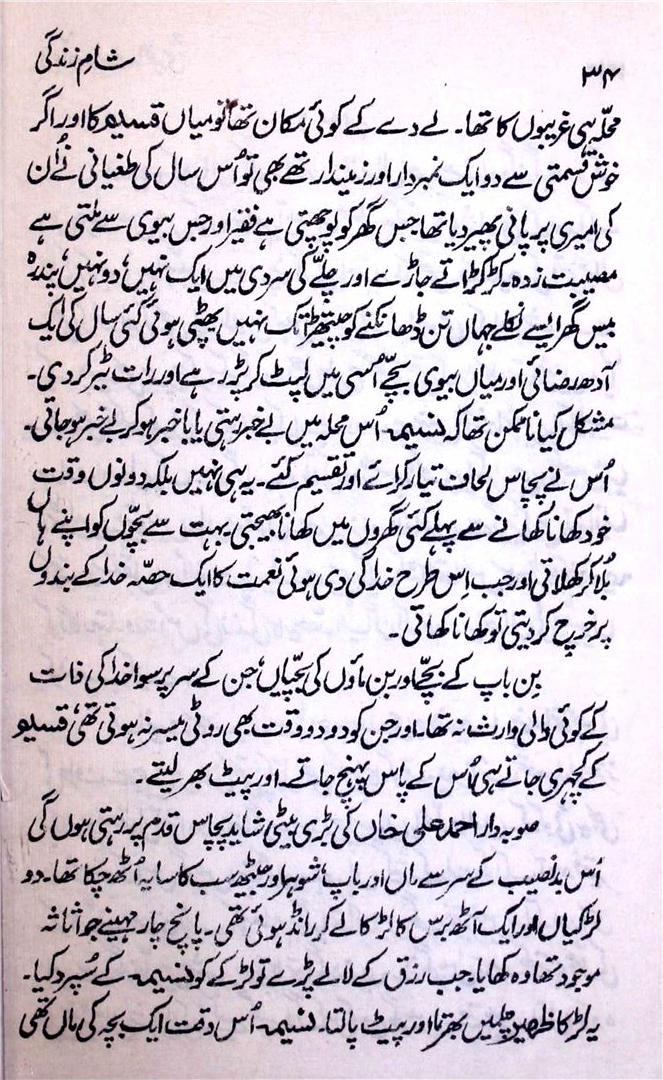 ۳۴
شامِ زندگی
محلہ ہی غریبوں کا تھا۔ لے دے کے کوئی مکان تھا تو میاں قسیم کا اور اگر
خوش قسمتی سے دو ایک نمبردار اور زمیندار تھے بھی تو اُس سال کی طغیانی نے اُن
کی امیری پر پانی پھیر دیا تھا جس گھر کو پوچھتی ہے فقیر اور جس بیوی سے ملتی ہے
مصیبت زدہ۔ کڑکڑاتے جاڑے اور چلّے کی سردی میں ایک نہیں، دو نہیں، پندرہ
بیس گھر ایسے نکلے جہاں تن ڈھانکنے کو چیتھڑا تک نہیں پھٹی ہوئی کئی سال کی ایک
آدھ رضائی اور میاں بیوی بچے اُسی میں لپٹ کر پڑ رہے اور رات تیر کر دی۔
مشکل کیا ناممکن تھا کہ نسیمہ اُس محلہ میں بے خبر رہتی یا باخبر ہو کر بے خبر ہو جاتی۔
اُس نے پچاس لحاف تیار کرائے اور تقسیم کئے۔ یہ ہی نہیں بلکہ دونوں وقت
خود کھانا کھانے سے پہلے کئی گھروں میں کھانا بھیجتی بہت سے بچّوں کو اپنے ہاں
بُلا کر کھلاتی اور جب اِس طرح خدا کی دی ہوئی نعمت کا ایک حصّہ خدا کے بندوں
پر خرچ کر دیتی تو کھانا کھاتی۔
بن باپ کے بچّے اور بن ماؤں کی بچّیاں، جن کے سر پر سوا خدا کی ذات
کے کوئی والی وارث نہ تھا۔ اور جن کو دو دو وقت بھی روٹی میسر نہ ہوتی تھی، قسیم
کے کچہری جاتے ہی اُس کے پاس پہنچ جاتے۔ اور پیٹ بھر لیتے۔
صوبہ دار احمد علی خاں کی بڑی بیٹی شاید پچاس قدم پر رہتی ہوں گی
اُس بدنصیب کے سر سے ماں اور باپ، شوہر اور جیٹھ سب کا سایہ اُٹھ چکا تھا۔ دو
لڑکیاں اور ایک آٹھ برس کا لڑکا لے کر رانڈ ہوئی تھی۔ پانچ چار مہینے جو اثاثہ
موجود تھا وہ کھایا۔ جب رزق کے لالے پڑے تو لڑکے کو نسیمہ کے سُپرد کیا۔
یہ لڑکا ظہیر چلمیں بھرتا اور پیٹ پالتا۔ نسیمہ اُس وقت ایک بچہ کی ماں تھی